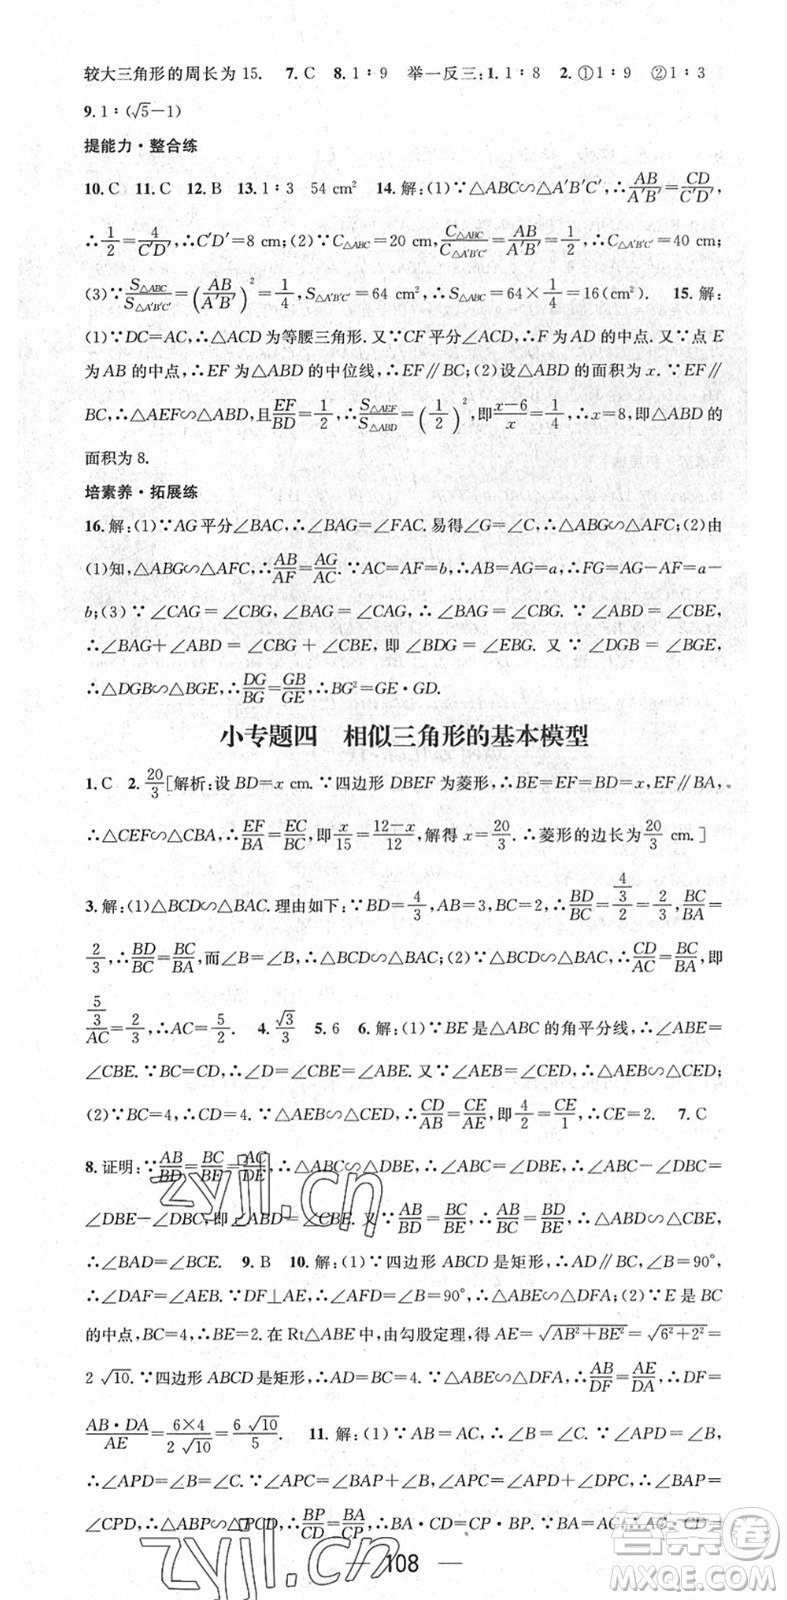 较大三角形的周长为 15.  7. C  8. 1∶9  举一反三:1. 1∶8  2. ①1∶9  ②1∶3
9. 1∶(√5−1)
提能力·整合练
10. C  11. C  12. B  13. 1∶3  54 cm²  14. 解:(1)∵△ABC∽△A′B′C′,∴AB/A′B′=CD/C′D′,
∴1/2=4/C′D′,∴C′D′=8 cm;(2)∵C△ABC=20 cm,C△ABC/C△A′B′C′=AB/A′B′=1/2,∴C△A′B′C′=40 cm;
(3)∵S△ABC/S△A′B′C′=(AB/A′B′)²=1/4,S△A′B′C′=64 cm²,∴S△ABC=64×1/4=16(cm²).  15. 解:
(1)∵DC=AC,∴△ACD为等腰三角形.又∵CF平分∠ACD,∴F为AD的中点.又∵点E
为AB的中点,∴EF为△ABD的中位线,∴EF∥BC;(2)设△ABD的面积为x.∵EF∥
BC,∴△AEF∽△ABD,且EF/BD=1/2,∴S△AEF/S△ABD=(1/2)²,即(x−6)/x=1/4,∴x=8,即△ABD的
面积为8.
培素养·拓展练
16. 解:(1)∵AG平分∠BAC,∴∠BAG=∠FAC.易得∠G=∠C,∴△ABG∽△AFC;(2)由
(1)知,△ABG∽△AFC,∴AB/AF=AG/AC.∵AC=AF=b,∴AB=AG=a,∴FG=AG−AF=a−
b;(3)∵∠CAG=∠CBG,∠BAG=∠CAG,∴∠BAG=∠CBG.∵∠ABD=∠CBE,
∴∠BAG+∠ABD=∠CBG+∠CBE,即∠BDG=∠EBG.又∵∠DGB=∠BGE,
∴△DGB∽△BGE,∴DG/BG=GB/GE,∴BG²=GE·GD.
小专题四  相似三角形的基本模型
1. C  2. 20/3[解析:设BD=x cm.∵四边形DBEF为菱形,∴BE=EF=BD=x,EF∥BA,
∴△CEF∽△CBA,∴EF/BA=EC/BC,即x/15=(12−x)/12,解得x=20/3.∴菱形的边长为20/3 cm.]
3. 解:(1)△BCD∽△BAC.理由如下:∵BD=4/3,AB=3,BC=2,∴BD/BC=(4/3)/2=2/3,BC/BA=
2/3,∴BD/BC=BC/BA,而∠B=∠B,∴△BCD∽△BAC;(2)∵△BCD∽△BAC,∴CD/AC=BC/BA,即
(5/3)/AC=2/3,∴AC=5/2.  4. √3/3  5. 6  6. 解:(1)∵BE是△ABC的角平分线,∴∠ABE=
∠CBE.∵BC=CD,∴∠D=∠CBE=∠ABE.又∵∠AEB=∠CED,∴△AEB∽△CED;
(2)∵BC=4,∴CD=4.∵△AEB∽△CED,∴CD/AB=CE/AE,即4/2=CE/1,∴CE=2.  7. C
8. 证明:∵AB/BD=BC/BE=AC/DE,∴△ABC∽△DBE,∴∠ABC=∠DBE,∴∠ABC−∠DBC=
∠DBE−∠DBC,即∠ABD=∠CBE.又∵AB/BD=BC/BE,∴AB/BC=BD/BE,∴△ABD∽△CBE,
∴∠BAD=∠BCE.  9. B  10. 解:(1)∵四边形ABCD是矩形,∴AD∥BC,∠B=90°,
∴∠DAF=∠AEB.∵DF⊥AE,∴∠AFD=∠B=90°,∴△ABE∽△DFA;(2)∵E是BC
的中点,BC=4,∴BE=2.在Rt△ABE中,由勾股定理,得AE=√(AB²+BE²)=√(6²+2²)=
2√10.∵四边形ABCD是矩形,∴AD=BC=4.∵△ABE∽△DFA,∴AB/DF=AE/DA,∴DF=
AB·DA/AE=6×4/2√10=6√10/5.  11. 解:(1)∵AB=AC,∴∠B=∠C.∵∠APD=∠B,
∴∠APD=∠B=∠C.∵∠APC=∠BAP+∠B,∠APC=∠APD+∠DPC,∴∠BAP=
∠CPD,∴△ABP∽△PCD,∴BP/CD=BA/CP,∴BA·CD=CP·BP.∵AB=AC,∴AC·CD=
108
zyjl.cn
zyjl.cn
答案圈
MXQE.COM